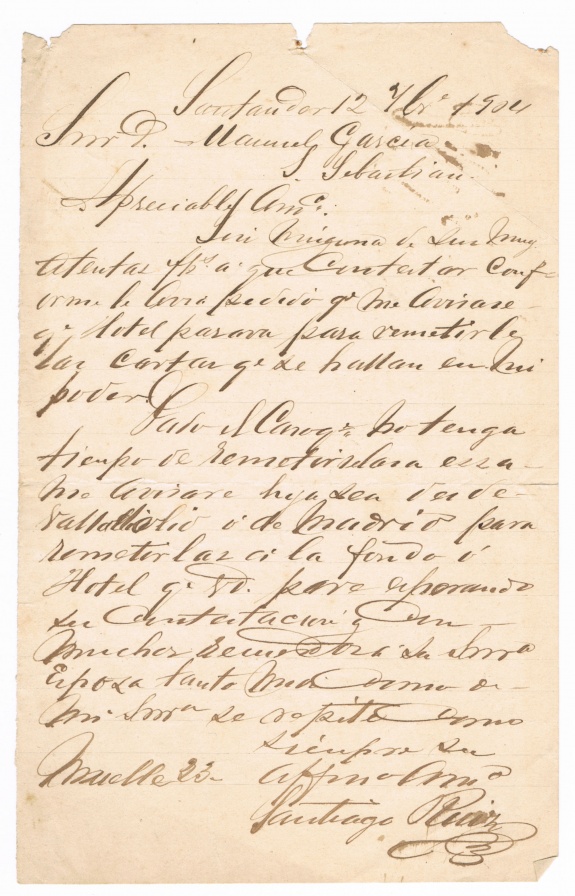 Santander 12 7bre 1904
Snr D. Manuel Garcia
S Sebastian
Apreciable Amo:
Sin Ninguna de sus muy
atentas fs. a que Contestar Conf-
orme le avia pedido qe me avisase
qe Hotel parava para remetirle
las cartas qe se hallan en mi
poder
Dado el Caso qe No tenga
tiempo de remetirselas a esa
me avisare hya sea desde
Valladolid o de Madrid para
remetirlas a la fonda ó
Hotel qe Vd. pare esperando
su Contestacion y Con
muchos recuerdos a su Snra
Esposa tanto mios como de
mi Snra se repite como
siempre su
Muelle 23 Affmo Amo
Santiago Ruiz